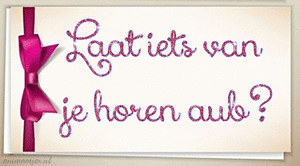 Laat iets van
je horen aub?